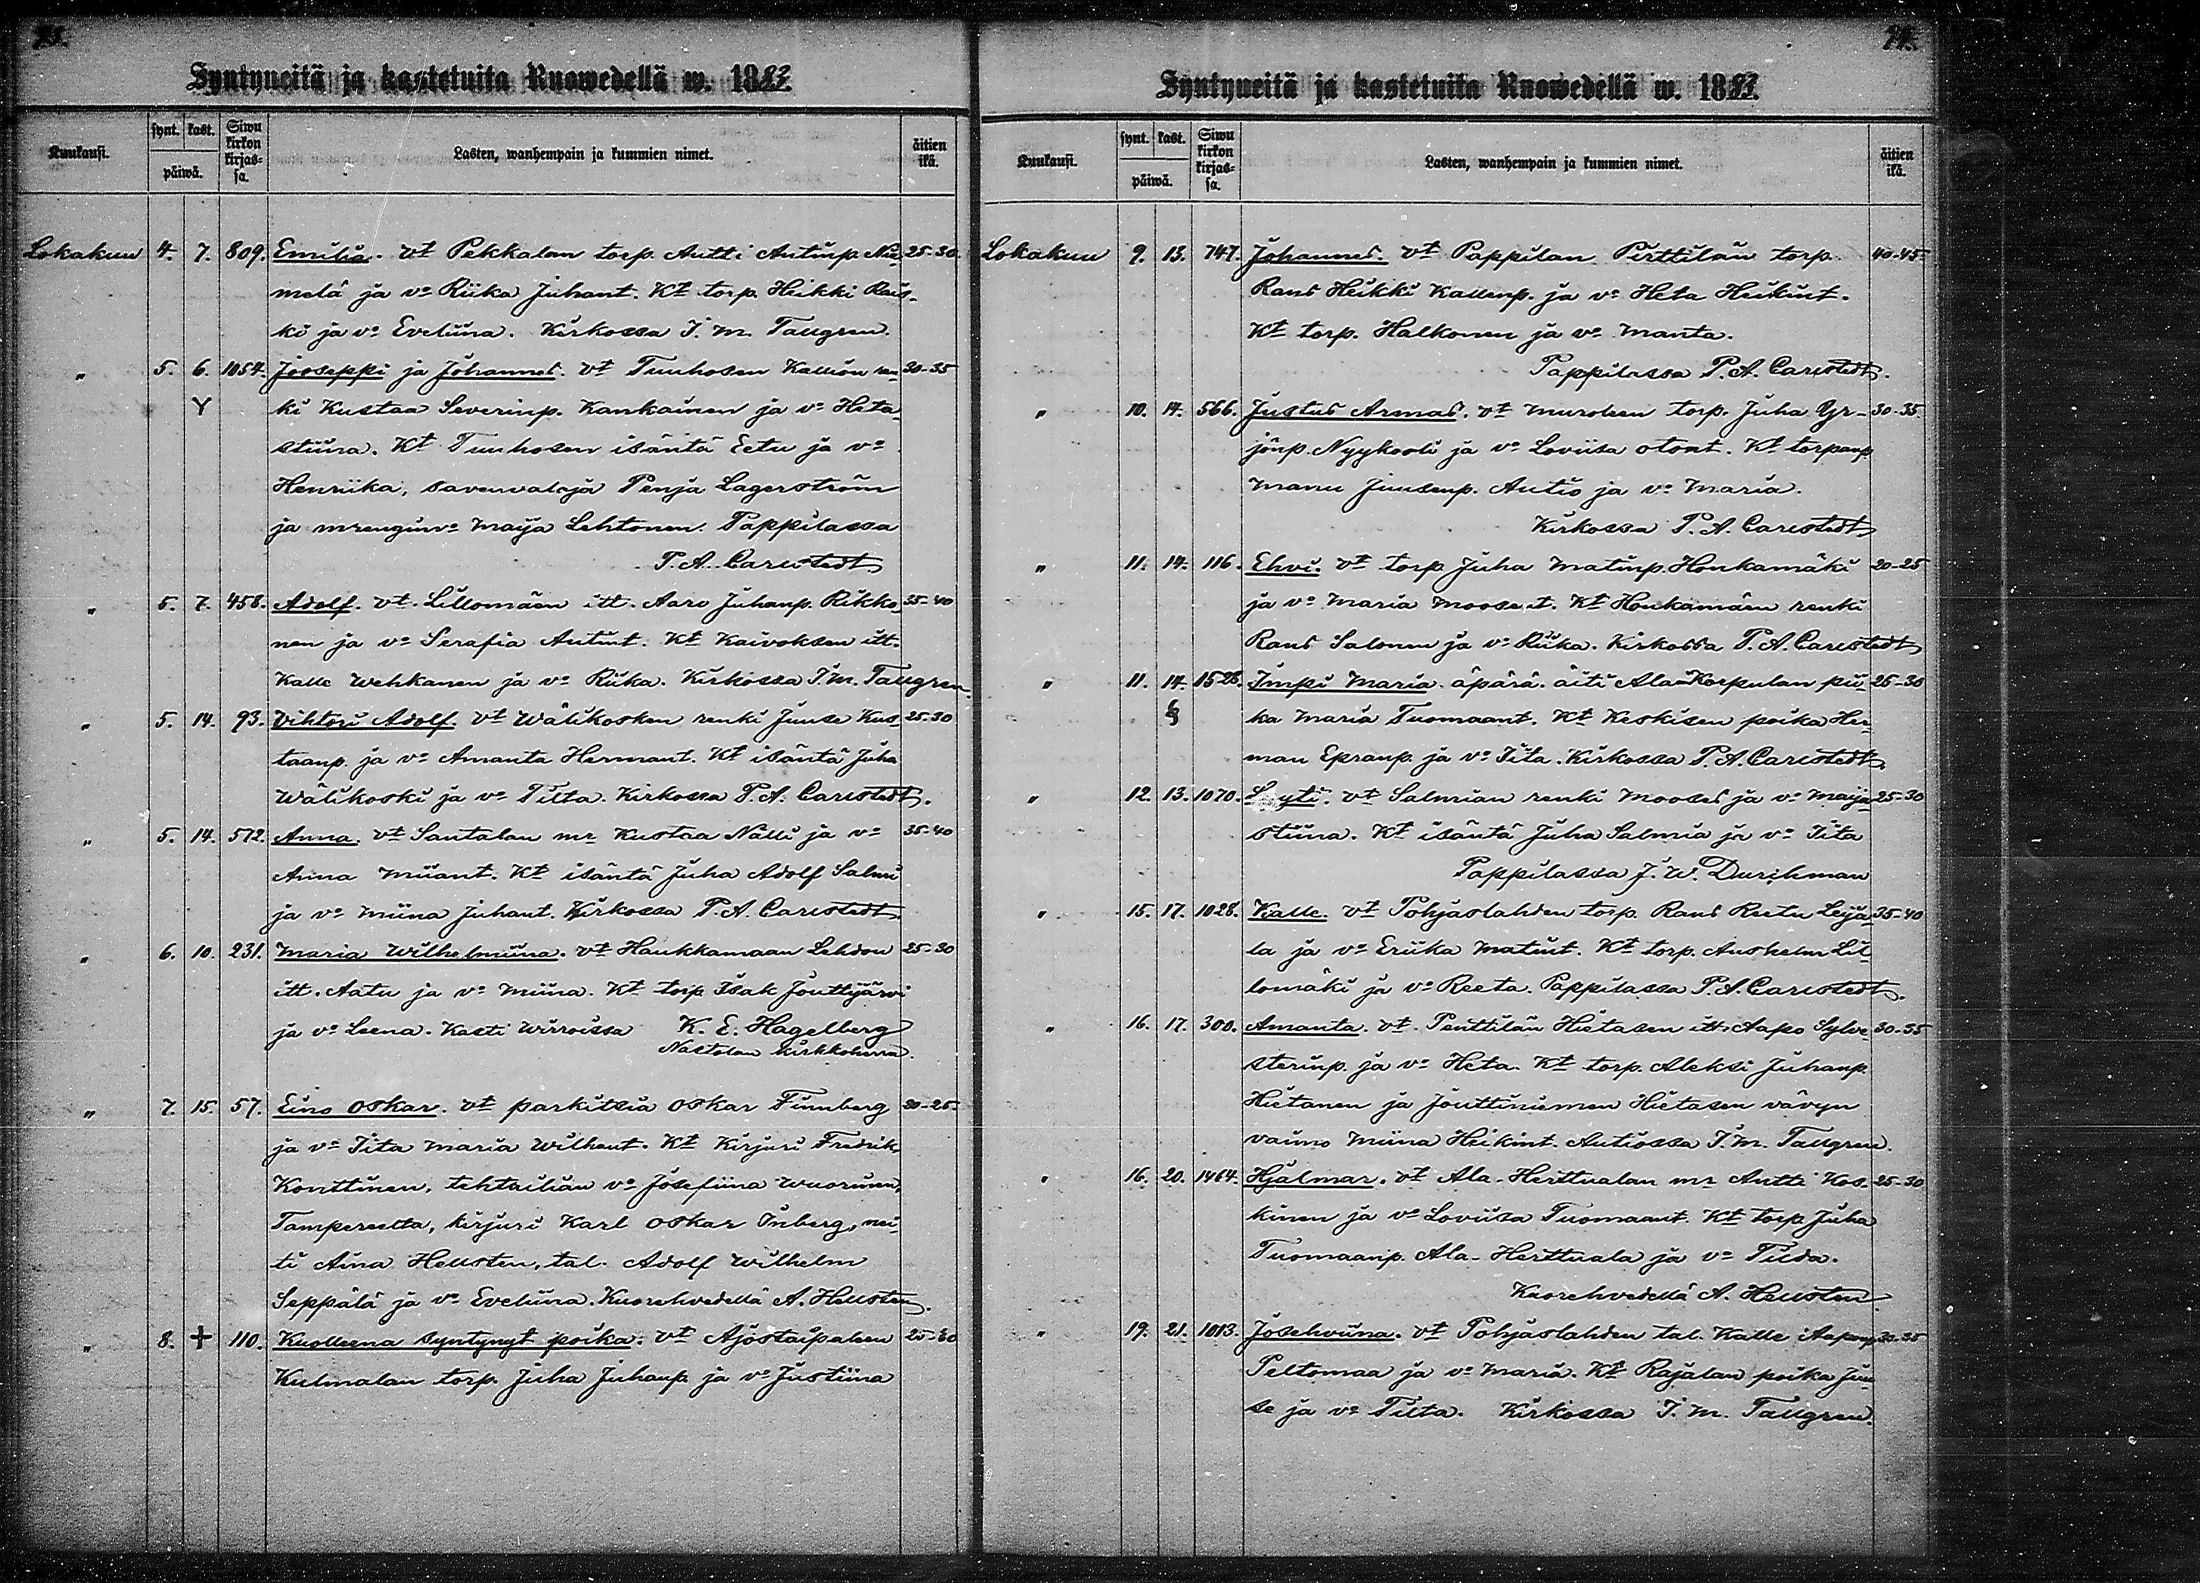 73.
Syntyneitä ja kastetuita Ruowedellä w. 1883.
Kuukausi. synt. kast. päiwä. Siwu kirkon kirjas- sa. Lasten, wanhempain ja kummien nimet. äitien ikä.
Lokakuu 4. 7. 809. Emilia. vt Pekkalan torp. Antti Antinp. Nie- 25-30
melä ja vo Riika Juhant. Kt torp. Heikki Rais-
ki ja vo Eveliina. Kirkossa I. M. Tallgren.
" 5. 6. 1054. Jooseppi ja Johannes. vt Tuuhosen Kallion ren- 30-35
Y ki Kustaa Severinp. Kankainen ja vo Heta
stiina. Kt Tuuhosen isäntä Eetu ja vo
Henriika, savenvalaja Penja Lagerström
ja mrenginvo Maija Lehtonen. Pappilassa
P. A. Carlstedt
" 5. 7. 458. Adolf. vt. Lillomäen itt. Aaro Juhanp. Rikko 35-40
nen ja vo Serafia Antint. Kt Kaivoksen itt.
Kalle Wehkanen ja vo Riika. Kirkossa I. M. Tallgren.
" 5. 14. 93. Vihtori Adolf. vt Wälikosken renki Juuse Kus- 25-30
taanp. ja vo Amanta Hermant. Kt isäntä Juha
Wälikoski ja vo Tilta. Kirkossa P. A. Carlstedt.
" 5. 14. 572. Anna. vt Santalan mr Kustaa Nälli ja vo 35-40
Anna Miiant. Kt isäntä Juha Adolf Salmi
ja vo Miina Juhant. Kirkossa P. A. Carlstedt.
" 6. 10. 231. Maria Wilhelmiina. vt Haukkamaan Lehdon 25-30
itt. Aatu ja vo Miina. Kt torp. Isak Jouttijärvi
ja vo Leena. Kasti Wirroissa K. E. Hagelberg
Nastolan kirkkoherra.
" 7. 15. 57. Eino Oskar. vt parkitsia Oskar Finnberg 20-25
ja vo Iita Maria Wilhent. Kt Kirjuri Fredrik
Konttinen, tehtailian vo Josefiina Wuorinen,
Tampereelta, kirjuri Karl Oskar Inberg, nei-
ti Aina Hellsten, tal. Adolf Wilhelm
Seppälä ja vo Eveliina. Kuorehvedellä A. Hellsten.
" 8. + 110. Kuolleena syntynyt poika. vt Ajostaipaleen 25-30
Kulmalan torp. Juha Juhanp. ja vo Justiina
74.
Syntyneitä ja kastetuita Ruowedellä w. 1883.
Kuukausi. synt. kast. päiwä. Siwu kirkon kirjas- sa. Lasten, wanhempain ja kummien nimet. äitien ikä.
Lokakuu 9. 13. 747. Johannes. vt Pappilan Pirttilän torp. 40-45
Rans Heikki Kallenp. ja vo Heta Heikint.
Kt torp. Halkonen ja vo Manta.
Pappilassa P. A. Carlstedt.
" 10. 14. 566. Justus Armas. vt Muroleen torp. Juha Yr- 30-35
jönp. Nyykooli ja vo Loviisa Otont. Kt torpanp
Manu Juusenp. Autio ja vo Maria.
Kirkossa P. A. Carlstedt
" 11. 14. 116. Ehvi. vt torp Juha Matinp. Honkamäki 20-25
ja vo Maria Moosest. Kt Honkamäen renki
Rans Salonen ja vo Riika. Kirkossa P. A. Carlstedt
" 11. 14. 1525. Impi Maria. äpärä. äiti Ala-Korpulan pii- 25-30
ka Maria Tuomaant. Kt Keskisen poika Her-
man Epranp. ja vo Iita. Kirkossa P. A. Carlstedt.
" 12. 13. 1070. Lyyti. vt Salmian renki Mooses ja vo Maija- 25-30
stiina. Kt isäntä Juha Salmia ja vo Iita
Pappilassa J. W. Durchman
" 15. 17. 1028. Kalle. vt Pohjaslahden torp. Rans Reetu Leija- 35-40
la ja vo Eriika Matint. Kt torp. Anshelm Lil-
lomäki ja vo Reeta. Pappilassa P. A. Carlstedt.
" 16. 17. 300. Amanta. vt. Penttilän Hietasen itt. Aapo Sylve- 30-35
sterinp. ja vo Heta. Kt torp. Aleksi Juhanp.
Hietanen ja Jouttiniemen Hietasen vävyn
vaimo Miina Heikint. Autiossa I. M. Tallgren.
" 16. 20. 1464. Hjalmar. vt Ala-Herttualan mr Antti Kos- 25-30
kinen ja vo Loviisa Tuomaant. Kt torp. Juha
Tuomaanp. Ala-Herttuala ja vo Tilda.
Kuorehvedellä A. Hellsten
" 19. 21. 1013. Josehviina. vt Pohjaslahden tal. Kalle Aaponp 30-35
Peltomaa ja vo Maria. Kt Rajalan poika Juu
se ja vo Tilta. Kirkossa I. M. Tallgren.